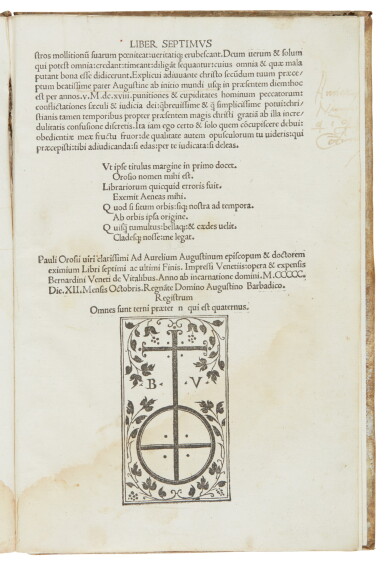 LIBER SEPTIMVS
stros mollitionū suarum pœniteat:ueritatiq; erubescant. Deum uerum & solum
qui potest omnia:credant:timeant:diligāt sequantur:cuius omnia & quæ mala
putant bona esse didicerunt. Explicui adiuuante christo secūdum tuum præce-
ptum beatissime pater Augustine ab initio mundi usq; in præsentem diem:hoc
est per annos.v.M.dc.xviii.punitiones & cupiditates hominum peccatorum:
conflictationes sæculi & iudicia dei:q̄breuissime & q̄ simplicissime potui:chri-
stianis tamen temporibus propter præsentem magis christi gratiā ab illa incre-
dulitatis confusione discretis. Ita iam ego certo & solo quem cōcupiscere debui:
obedientiæ meæ fructu fruor:de qualitate autem opusculorum tu uideris:qui
præcepisti:tibi adiudicanda:si edas:per te iudicata:si deleas.
Vt ipse titulus margine in primo docet.
Orosio nomen mihi est.
Librariorum quicquid erroris fuit.
Exemit Aeneas mihi.
Quod si situm orbis:siq; nostra ad tempora.
Ab orbis ipsa origine.
Quisq; tumultus:bellaq; & cædes uelit.
Cladesq; nosse:me legat.
Pauli Orosii uiri clarissimi Ad Aurelium Augustinum episcopum & doctorem
eximium Libri septimi ac ultimi Finis. Impressi Venetiis:opera & expensis
Bernardini Veneti de Vitalibus. Anno ab incarnatione domini. M.CCCCC.
Die.XII. Mensis Octobris. Regnāte Domino Augustino Barbadico.
Registrum
Omnes sunt terni præter n qui est quaternus.
B V